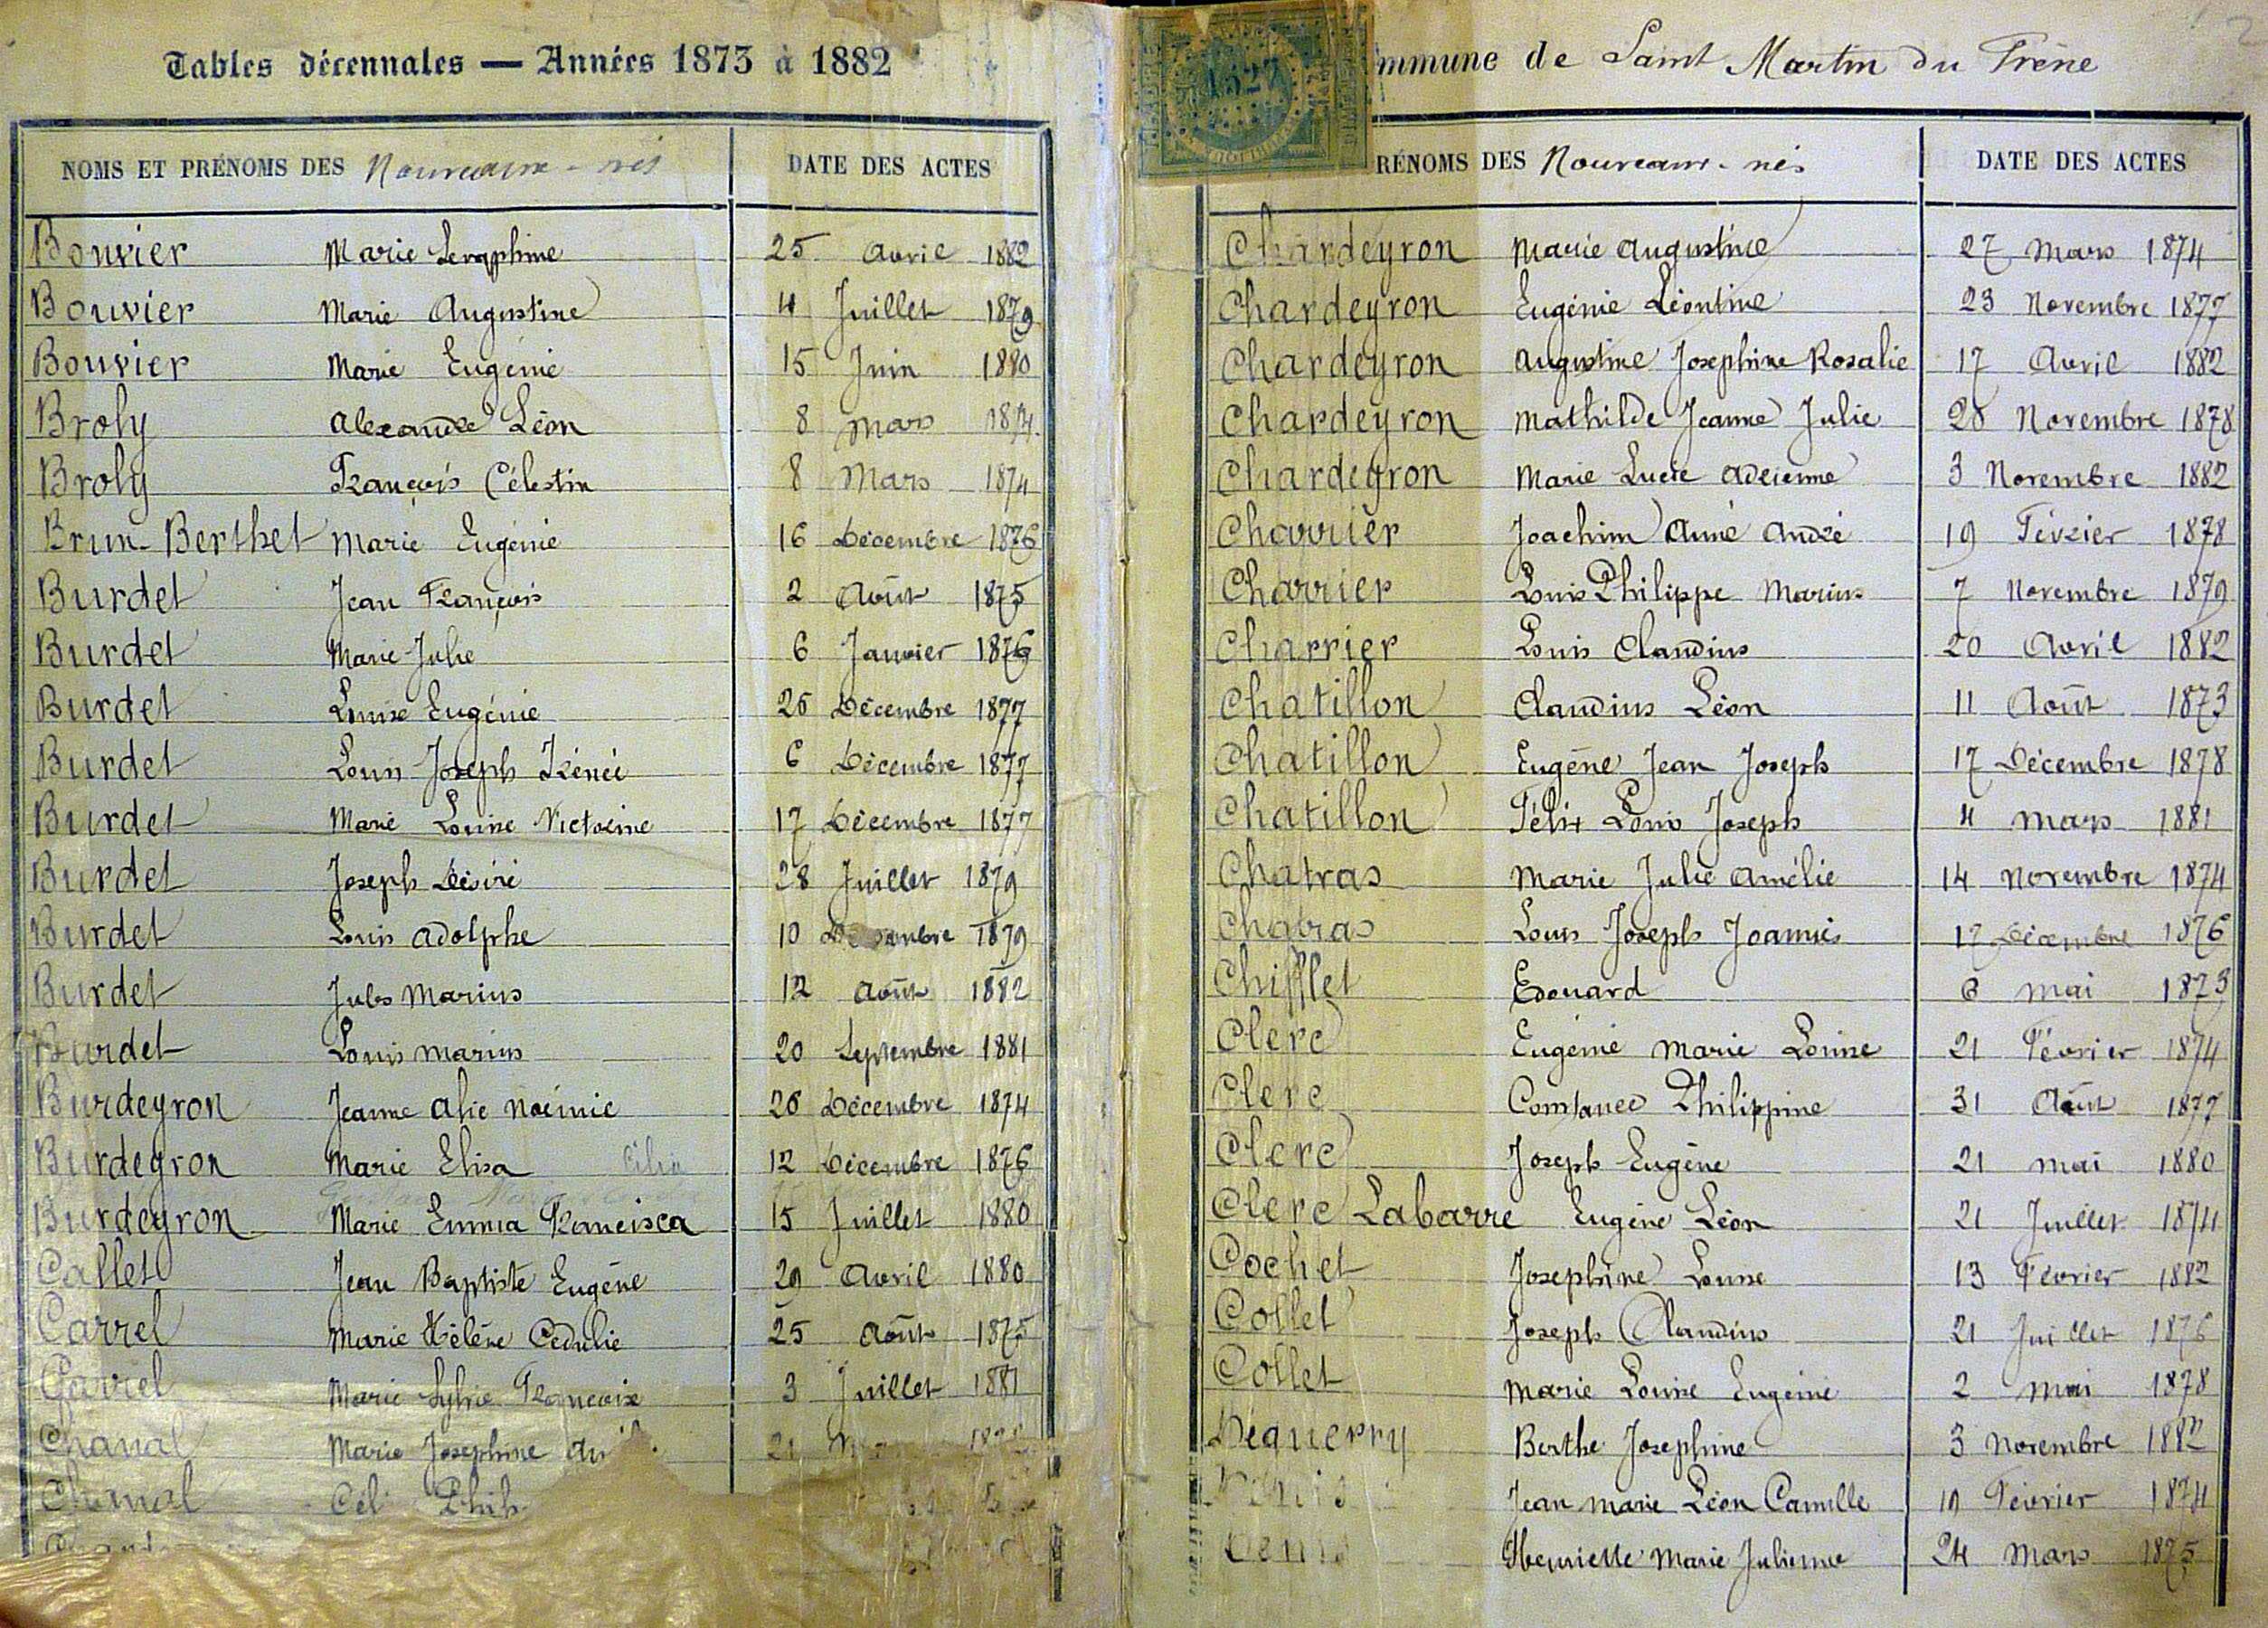 Tables décennales — Années 1873 à 1882
NOMS ET PRÉNOMS DES Nouveaux-nés DATE DES ACTES
Bouvier Marie Seraphine 25 Avril 1882
Bouvier Marie Augustine 4 Juillet 1879
Bouvier Marie Eugénie 15 Juin 1880
Broly Alexandre Léon 8 Mars 1874
Broly François Célestin 8 Mars 1874
Brun-Berthet Marie Eugénie 16 Décembre 1876
Burdet Jean François 2 Août 1875
Burdet Marie Julie 6 Janvier 1876
Burdet Louise Eugénie 26 Décembre 1877
Burdet Louis Joseph Irénée 6 Décembre 1877
Burdet Marie Louise Victorine 17 Décembre 1877
Burdet Joseph Désiré 28 Juillet 1879
Burdet Louis Adolphe 10 1879
Burdet Jules Marius 12 Août 1882
Burdet Louis Marius 20 Septembre 1881
Burdeyron Jeanne Alie Noémie 26 Décembre 1874
Burdeyron Marie Elisa 12 Décembre 1876
Burdeyron Marie Emma Francisca 15 Juillet 1880
Callet Jean Baptiste Eugène 29 Avril 1880
Carrel Marie Hélène Cedulie 25 Août 1875
Carrel Marie Sylvie Françoise 3 Juillet 1881
Chanal Marie Josephine 21
Chanal
mmune de Saint Martin du Frêne
RÉNOMS DES Nouveaux-nés DATE DES ACTES
Chardeyron Marie Augustine 27 Mars 1874
Chardeyron Eugénie Léontine 23 Novembre 1877
Chardeyron Augustine Josephine Rosalie 17 Avril 1882
Chardeyron Mathilde Jeanne Julie 28 Novembre 1878
Chardeyron Marie Lucie Adrienne 3 Novembre 1882
Charrier Joachim Aimé André 19 Février 1878
Charrier Louis Philippe Marius 7 Novembre 1879
Charrier Louis Claudius 20 Avril 1882
Chatillon Claudius Léon 11 Août 1873
Chatillon Eugène Jean Joseph 17 Décembre 1878
Chatillon Félix Louis Joseph 4 Mars 1881
Chatras Marie Julie Amélie 14 Novembre 1874
Chatras Louis Joseph Joannès 17 Décembre 1876
Chifflet Edouard 6 Mai 1873
Clerc Eugénie Marie Louise 21 Février 1874
Clerc Constance Philippine 31 Août 1877
Clerc Joseph Eugène 21 Mai 1880
Clerc Labarre Eugène Léon 21 Juillet 1874
Cochet Josephine Louise 13 Février 1882
Collet Joseph Claudius 21 Juillet 1876
Collet Marie Louise Eugénie 2 Mai 1878
Dequerry Berthe Josephine 3 Novembre 1882
Jean Marie Léon Camille 19 Février 1874
Denis Henriette Marie Julienne 24 Mars 1875